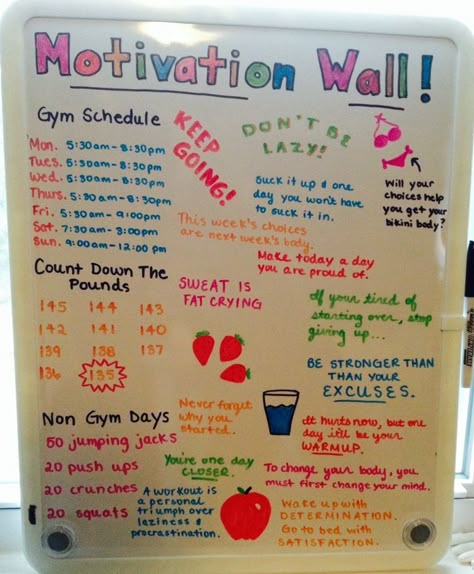 Motivation Wall!
Gym Schedule
Mon. 5:30am-8:30pm
Tues. 5:30am-8:30pm
Wed. 5:30am-8:30pm
Thurs. 5:30am-8:30pm
Fri. 5:30am-9:00pm
Sat. 7:30am-3:00pm
Sun. 9:00am-12:00pm
KEEP
GOING!
DON'T BE
LAZY!
Suck it up & one
day you won't have
to suck it in.
Will your
choices help
you get your
bikini body?
This week's choices
are next week's body.
Make today a day
you are proud of.
Count Down The
Pounds
145 144 143
142 141 140
139 138 137
136 135
SWEAT IS
FAT CRYING
If your tired of
starting over, stop
giving up...
BE STRONGER THAN
THAN YOUR
EXCUSES.
Never forget
why you
started.
It hurts now, but one
day it'll be your
WARMUP.
Non Gym Days
50 jumping jacks
20 push ups
20 crunches
20 squats
You're one day
CLOSER.
To change your body, you
must first change your mind.
A workout is
a personal
triumph over
laziness &
procrastination.
Wake up with
DETERMINATION.
Go to bed with
SATISFACTION.